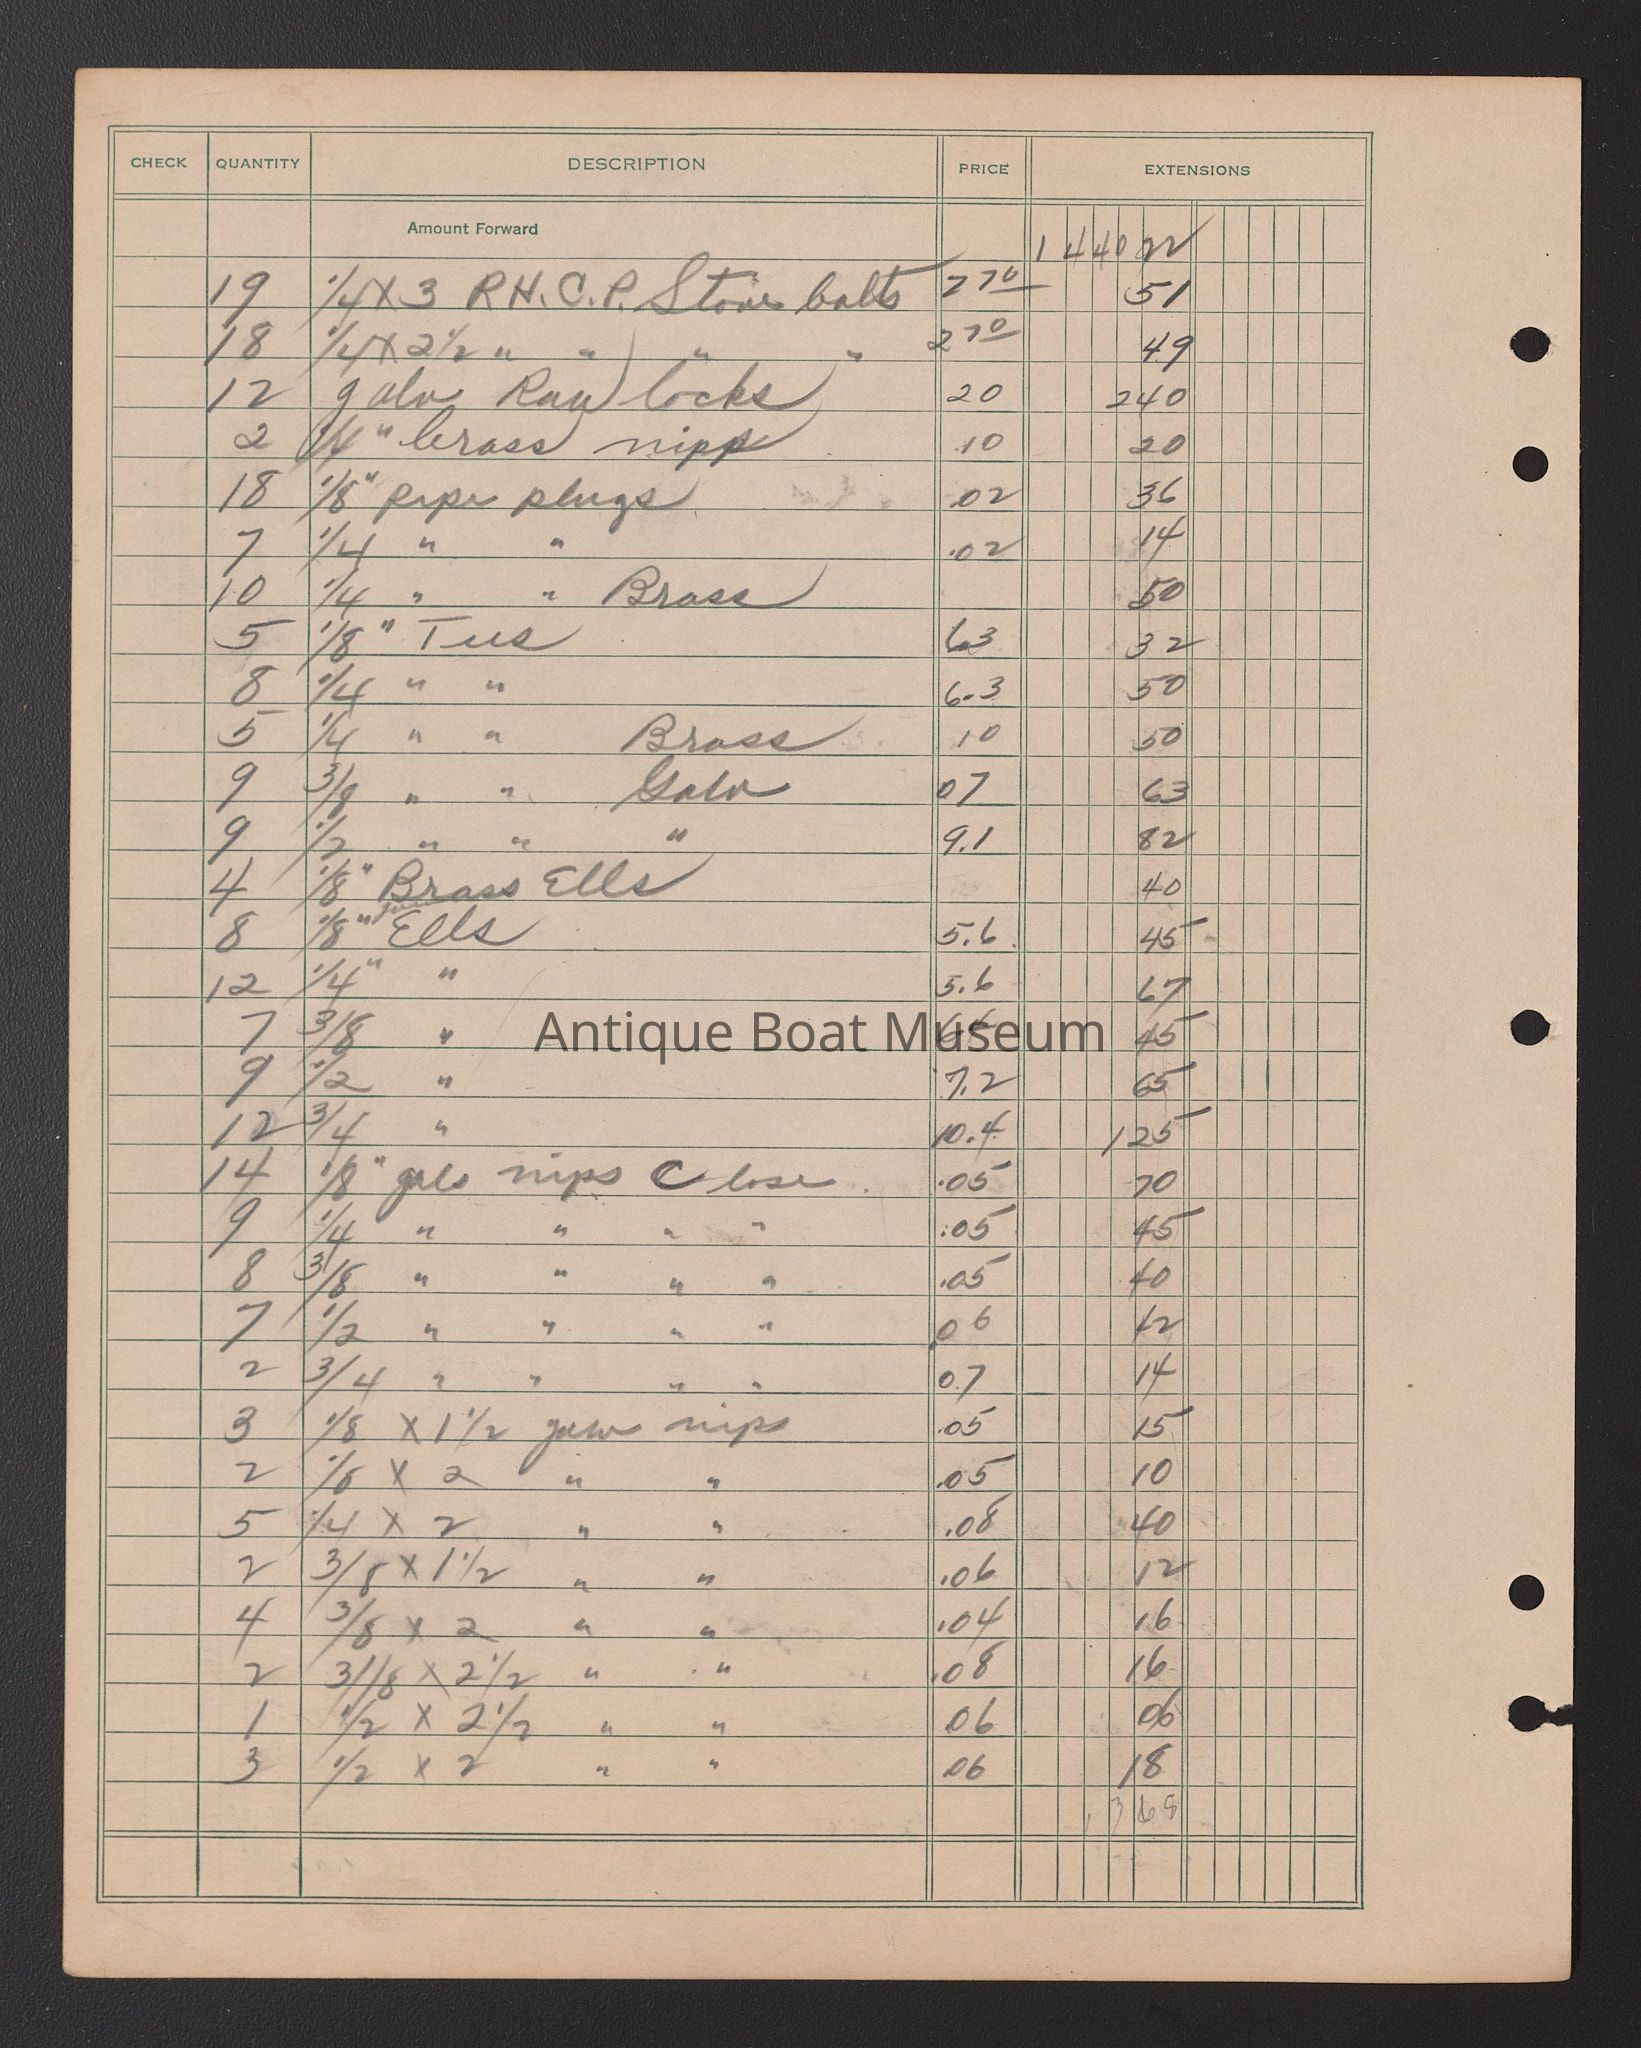 CHECK QUANTITY DESCRIPTION PRICE EXTENSIONS
Amount Forward 1 440 22
19 1/4 X 3 R.H.C.P. Stove bolts 2 70 51
18 1/4 X 2 1/2 " " " " 2 70 49
12 galv Row locks 20 240
2 1/4" brass nipp .10 20
18 1/8" pipe plugs .02 36
7 1/4 " " .02 14
10 1/4 " " Brass 50
5 1/8" Tees 6.3 32
8 1/4 " " 6.3 50
5 1/4 " " Brass 10 50
9 3/8 " " Galv 07 63
9 1/2 " " " 9.1 82
4 1/8" Brass Ells 40
8 1/8" Ells 5.6 45
12 1/4" " 5.6 67
7 3/8 " 45
Antique Boat Museum
9 1/2 " 7.2 65
12 3/4 " 10.4 125
14 1/8" galv nips Close .05 70
9 1/4 " " " " .05 45
8 3/8 " " " " .05 40
7 1/2 " " " " .06 42
2 3/4 " " " " 07 14
3 1/8 X 1 1/2 galv nips .05 15
2 1/8 X 2 " " .05 10
5 1/4 X 2 " " .08 40
2 3/8 X 1 1/2 " " .06 12
4 3/8 X 2 " " .04 16
2 3/8 X 2 1/2 " " .08 16
1 1/2 X 2 1/2 " " 06 06
3 1/2 X 2 " " .06 18
1368